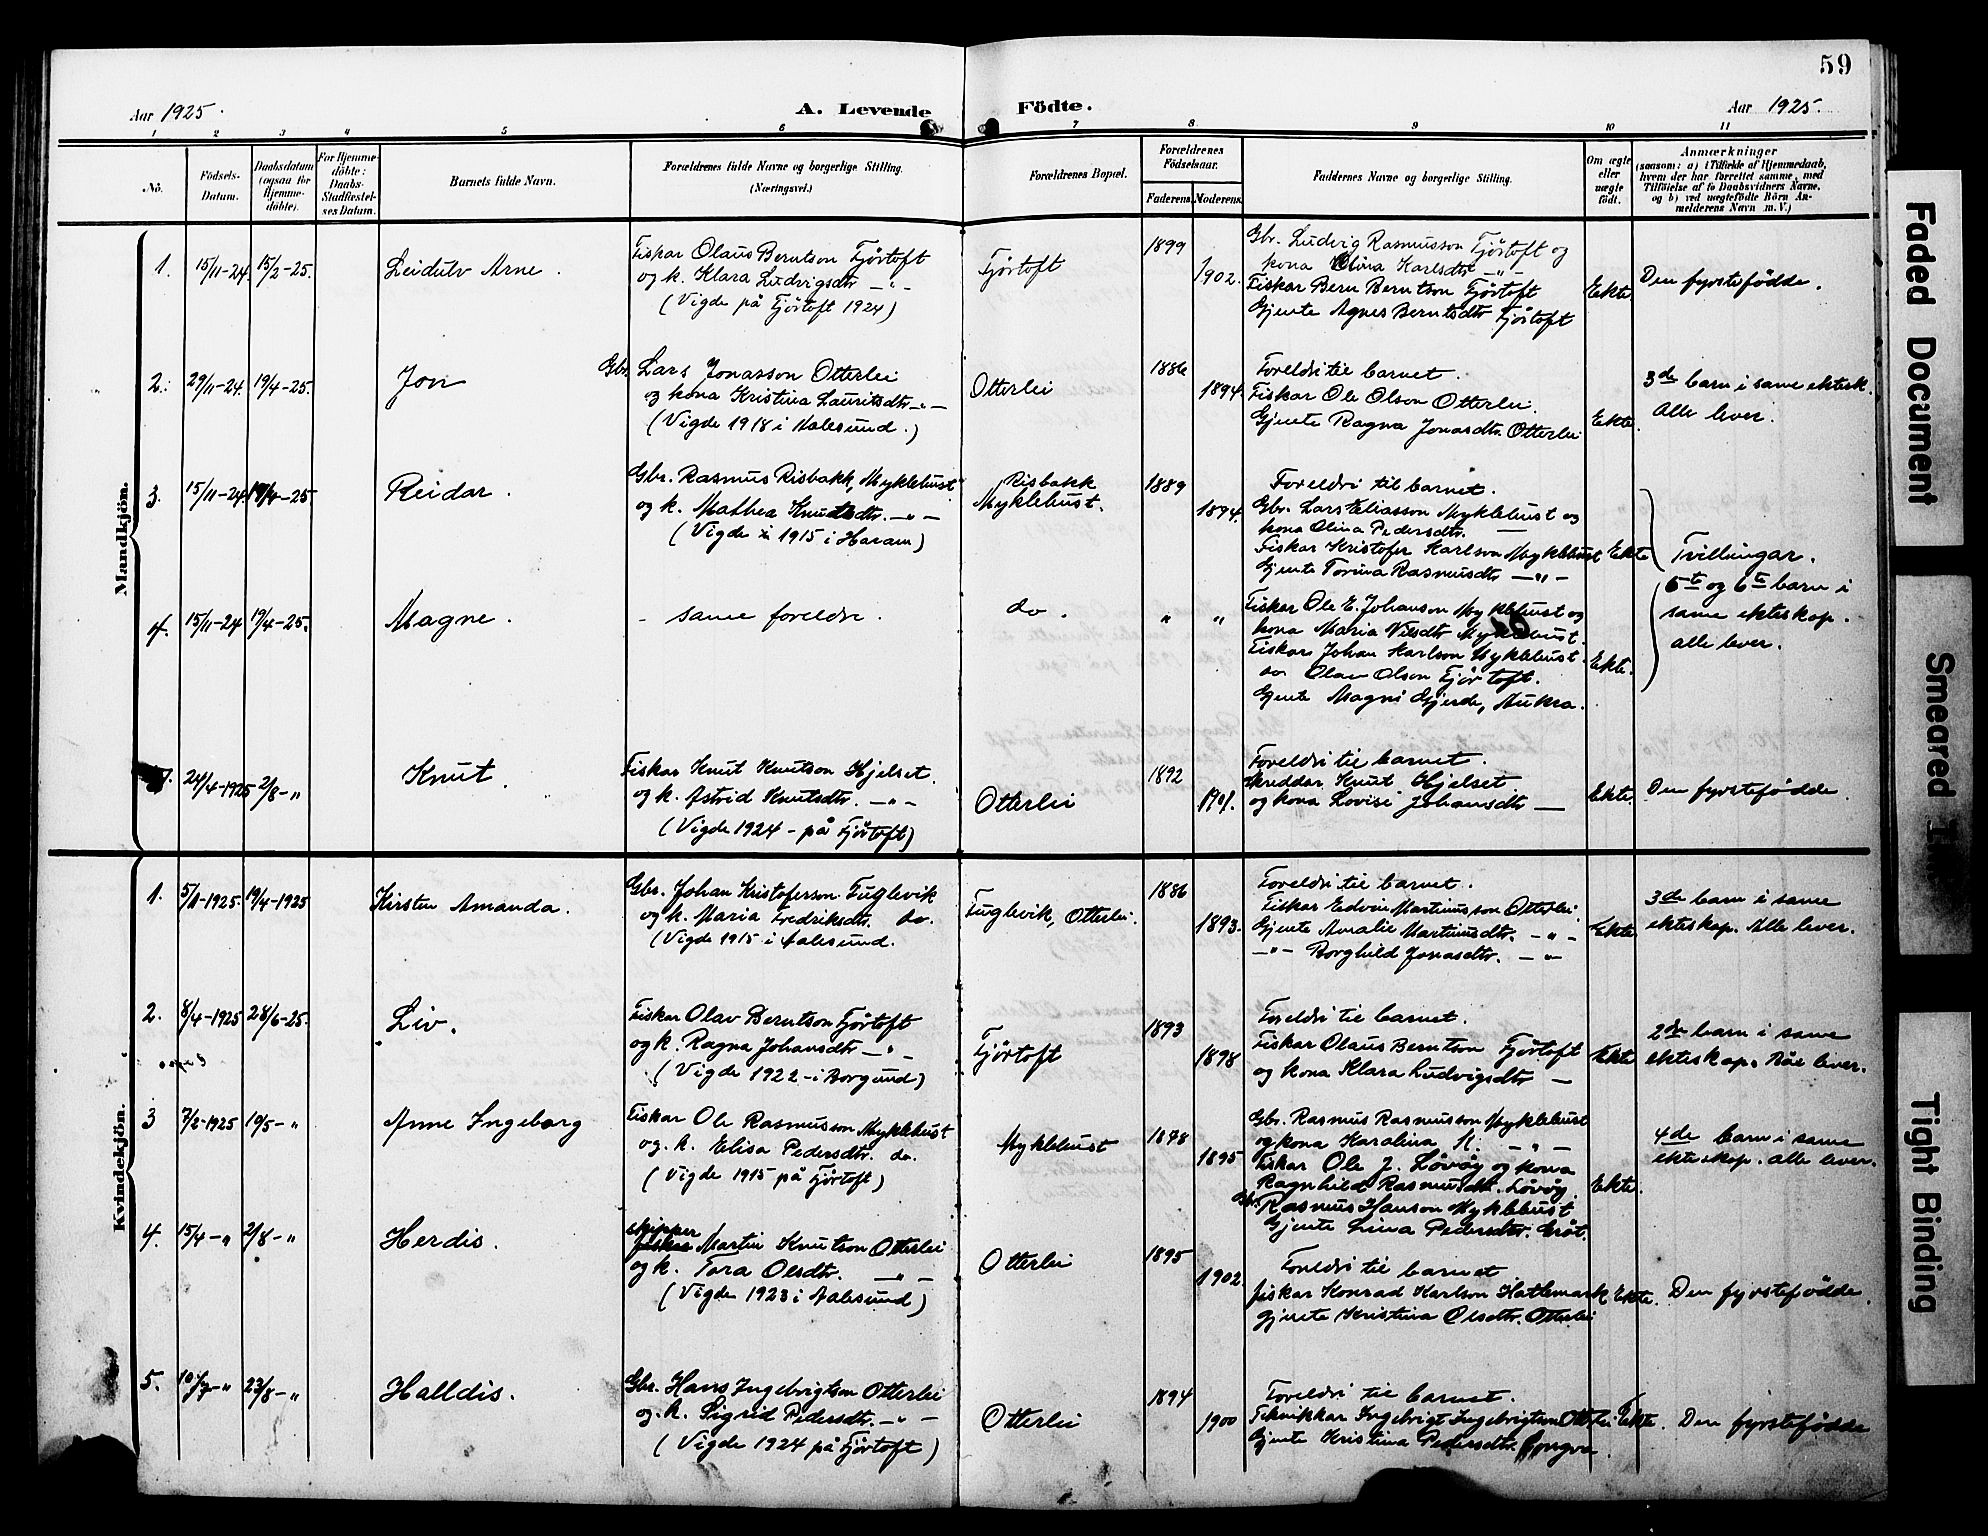 59
Aar 1925.
A. Levende Födte.
Aar 1925.
1 2 3 4 5 6 7 8 9 10 11
No.
Födsels-Datum.
Daabsdatum (ogsaa for Hjemme-döbte).
For Hjemme-döbte: Daabs-Stadfæstel-ses Datum.
Barnets fulde Navn.
Forældrenes fulde Navne og borgerlige Stilling.
(Næringsvei.)
Forældrenes Bopæl.
Forældrenes Födselsaar.
Faderens. Moderens.
Faddernes Navne og borgerlige Stilling.
Om ægte eller uægte födt.
Anmærkninger
(saasom: a) i Tilfælde af Hjemmedaab, hvem der har forrettet samme, med Tilföielse af to Daabsvidners Navne, og b) ved uægtefödte Börn Anmelderens Navn m.V.)
Mandkjön.
1. 15/11-24. 15/2-25. Leidulv Arne.
Fiskar Olaus Berntson Fjörtoft
og k. Klara Ludvigsdtr —"—
(Vigde på Fjörtoft 1924)
Fjörtoft
1899
1902.
Gbr. Ludvig Rasmusson Fjörtoft og
kona Olina Karlsdtr —"—
Fiskar Bern Berntson Fjörtoft
Gjente Agnes Berntsdtr Fjörtoft
Ekte
Den fyrstefödde.
2. 29/11-24. 19/4-25. Jon
Gbr. Lars Jonasson Otterlei
og kona Kristina Lauritsdtr —"—
(Vigde 1918 i Aalesund.)
Otterlei
1886
1894.
Foreldri til barnet.
Fiskar Ole Olson Otterlei.
Gjente Ragna Jonasdtr. Otterlei
Ekte.
3de barn i same ektesk.
Alle lever.
3. 15/11-24. 19/4-25. Reidar.
Gbr. Rasmus Risbakk, Myklebust
og k. Mathea Knutsdtr. —"—
(Vigde i 1915 i Haram)
Risbakk
Myklebust.
1889
1894.
Foreldri til barnet.
Gbr. Lars Eliasson Myklebust og
kona Olina Pedersdtr. —
Fiskar Kristofer Karlson Myklebust
Gjente Torina Rasmusdtr —"—
Ekte
Tvillingar.
5te og 6te barn i
same ekteskap.
alle lever.
4. 15/11-24 19/4-25. Magne.
- same foreldre.
do.
" "
Fiskar Ole E. Johanson Myklebust og
kona Maria Nilsdtr Myklebust.
Fiskar Johan Karlson Myklebust.
do Olav Olson Fjörtoft.
Gjente Magni Gjerde, Aukra.
Ekte.
24/4-1925 2/8-" Knut.
Fiskar Knut Knutson Hjelset.
og k. Astrid Knutsdtr. —"—
(Vigde 1924 - på Fjörtoft)
Otterlei
1892
1901.
Foreldri til barnet.
Skreddar Knut Hjelset
og kona Lovise Johansdtr —
Ekte.
Den fyrstefödde.
Kvindekjön.
1. 5/1-1925. 19/4-1925 Kirsten Amanda.
Gbr. Johan Kristoferson Fuglevik
og k. Maria Fredriksdtr. do.
(Vigde 1915 i Aalesund.
Fuglevik, Otterlei.
1886
1893.
Foreldri til barnet.
Fiskar Edvin Martinusson Otterlei.
Gjente Amalie Martinusdtr. —"—
—"— Borghild Jonasdtr. —"—
Ekte.
3de barn i same
ekteskap. Alle lever.
2. 8/4-1925 28/6-25. Liv.
Fiskar Olav Berntson Fjörtoft
og k. Ragna Johansdtr —"—
(Vigde 1922 - i Borgund)
Fjörtoft
1893
1898
Foreldri til barnet.
Fiskar Olaus Berntson Fjörtoft
og kona Klara Ludvigsdtr —
Ekte
2de barn i same
ekteskap. Båe lever.
3 7/2-1925 10/5-" Anne Ingeborg
Fiskar Ole Rasmusson Myklebust
og k. Elisa Pedersdtr. do.
(Vigde 1915 på Fjörtoft)
Myklebust
1898
1895
Gbr. Rasmus Rasmusson Myklebust
og kona Karolina K. —"—
Fiskar Ole J. Lövöy og kona
Ragnhild Rasmusdtr. Lövöy.
Gbr. Rasmus Hanson Myklebust
Gjente Lina Pedersdtr. Gröt.
Ekte.
4de barn i same
ekteskap. alle lever.
4. 15/4-" 2/8-" Herdis.
skipper
fiskar Martin Knutson Otterlei
og k. Tora Olsdtr. —"—
(Vigde 1923 i Aalesund)
Otterlei
1895
1902.
Foreldri til barnet
fiskar Konrad Karlson Hattemark
gjente Kristina Olsdtr. Otterlei
Ekte.
Den fyrstefödde.
5. 10/7-" 23/8-" Halldis.
Gbr. Hans Ingebrigtson Otterlei
og k. Sigrid Pedersdtr. —"—
(Vigde 1924 på Fjörtoft)
Otterlei
1894
1900
Foreldri til barnet.
Teknikkar Ingebrigt Ingebrigtson Otterlei
Gjente Kristina Pedersdtr. Longva.
Ekte.
Den fyrstefödde
Faded Document
Smeared
Tight Binding